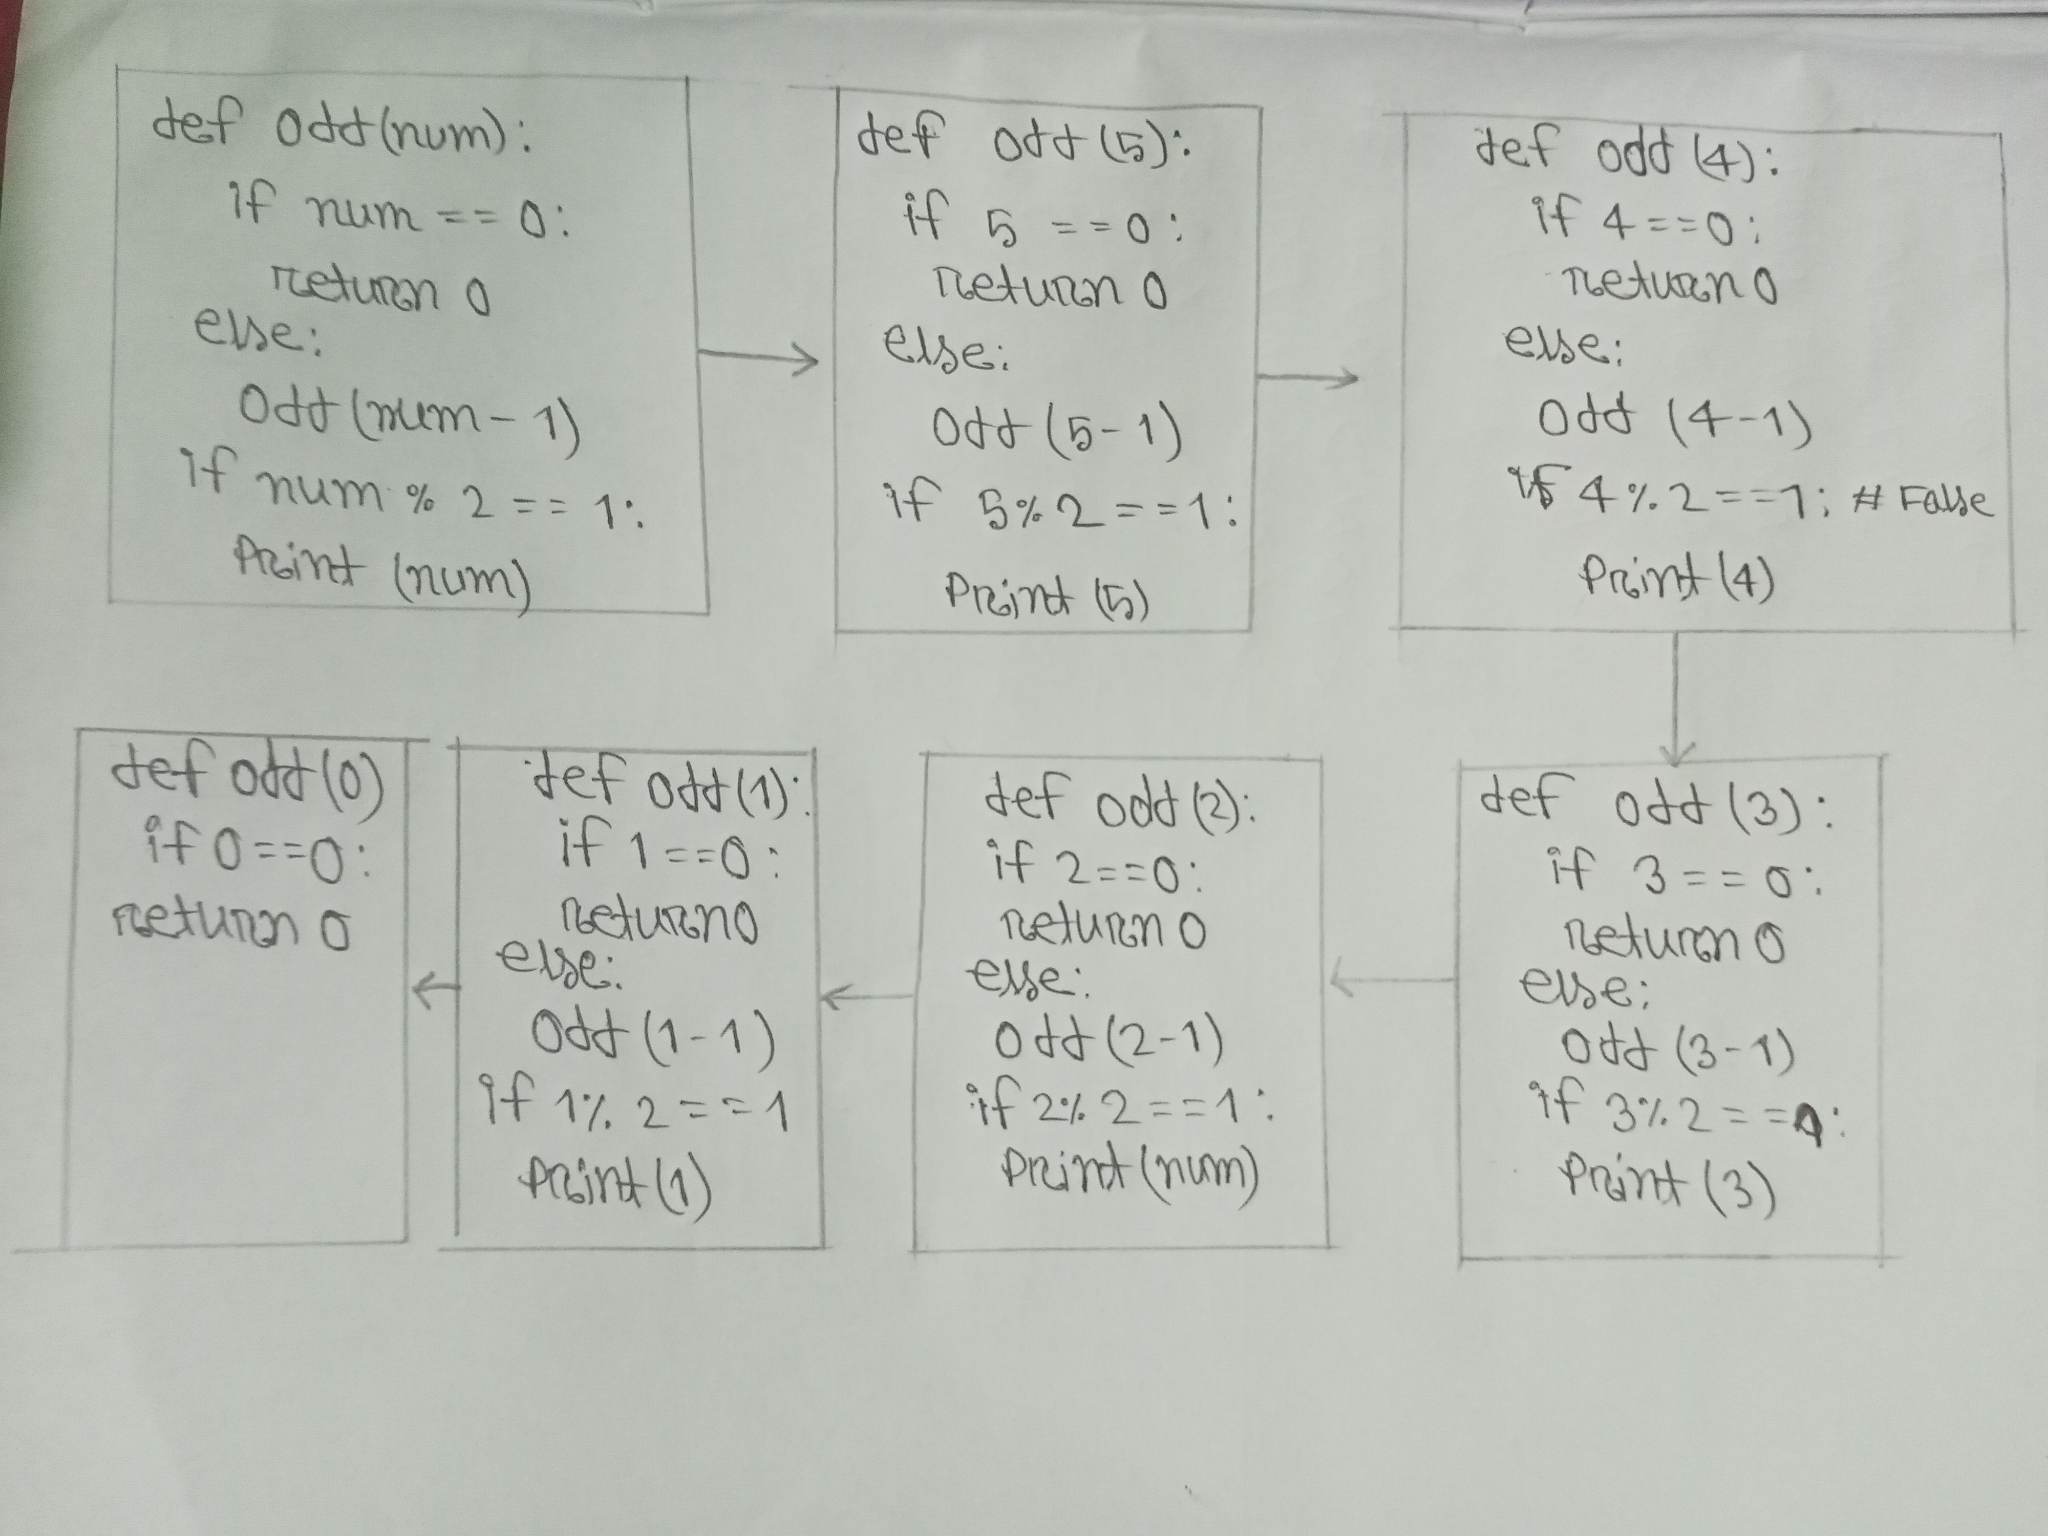 def odd(num):
if num == 0:
return 0
else:
odd(num-1)
if num % 2 == 1:
Print (num)
def odd (5):
if 5 == 0:
return 0
else:
odd (5-1)
if 5% 2 == 1:
Print (5)
def odd (4):
if 4 == 0:
return 0
else:
odd (4-1)
if 4 % 2 == 1: # False
Print (4)
def odd (3):
if 3 == 0:
return 0
else:
odd (3-1)
if 3% 2 == 1:
Print (3)
def odd (2):
if 2 == 0:
return 0
else:
odd (2-1)
if 2% 2 == 1:
Print (num)
def odd (1):
if 1 == 0:
return 0
else:
odd (1-1)
if 1% 2 == 1
Print (1)
def odd (0)
if 0 == 0:
return 0